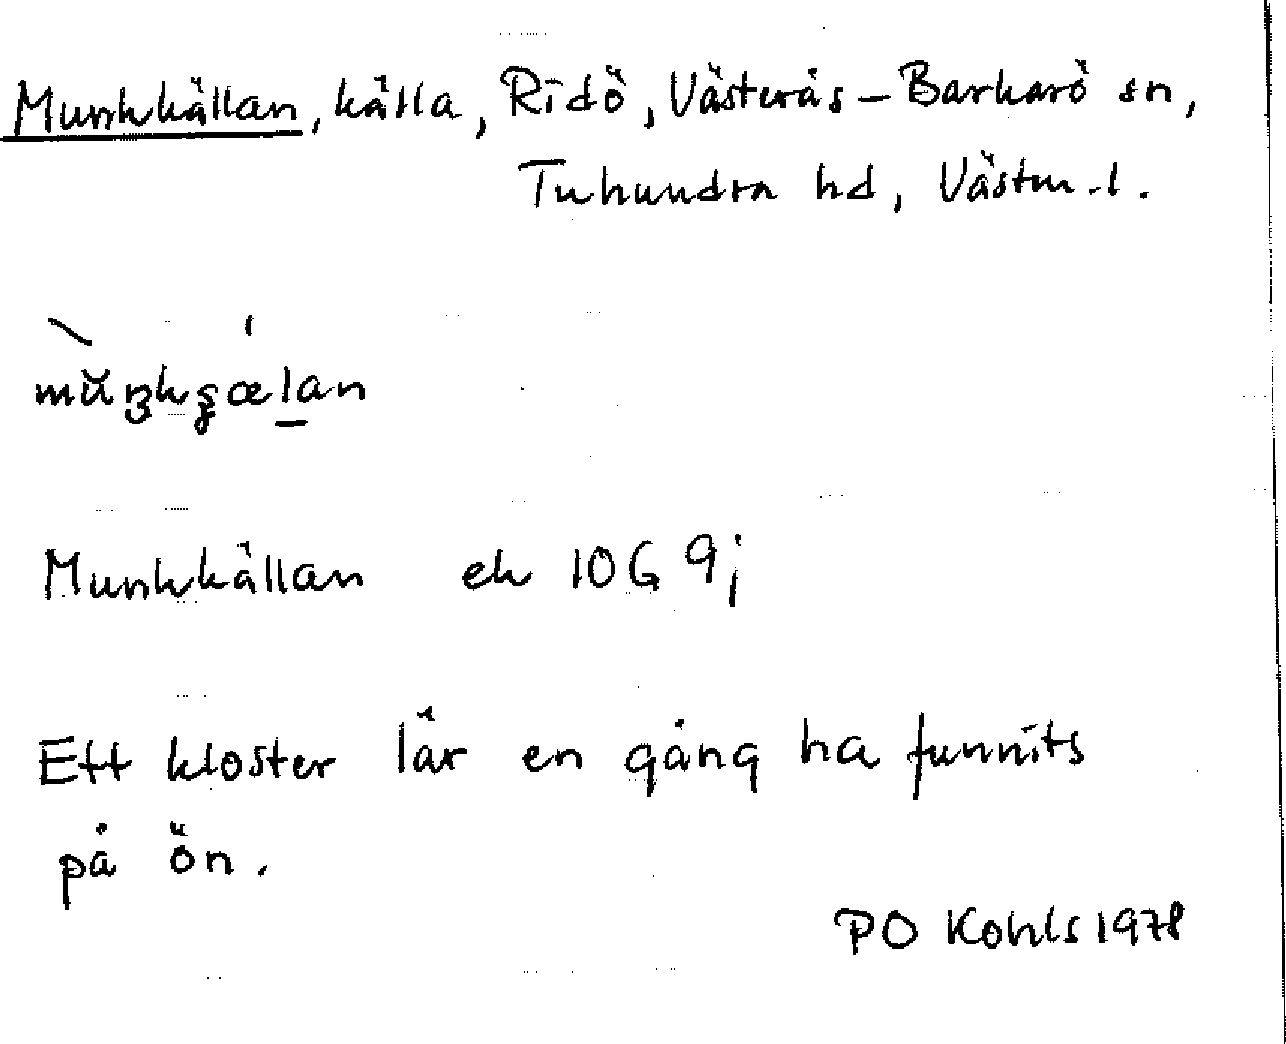 Munkkällan, källa, Ridö, Västerås-Barkarö sn,
Tuhundra hd, Västm.l.
Munkkällan ek 10G 9j
Ett kloster lär en gång ha funnits
på ön.
PO Kohls 1978